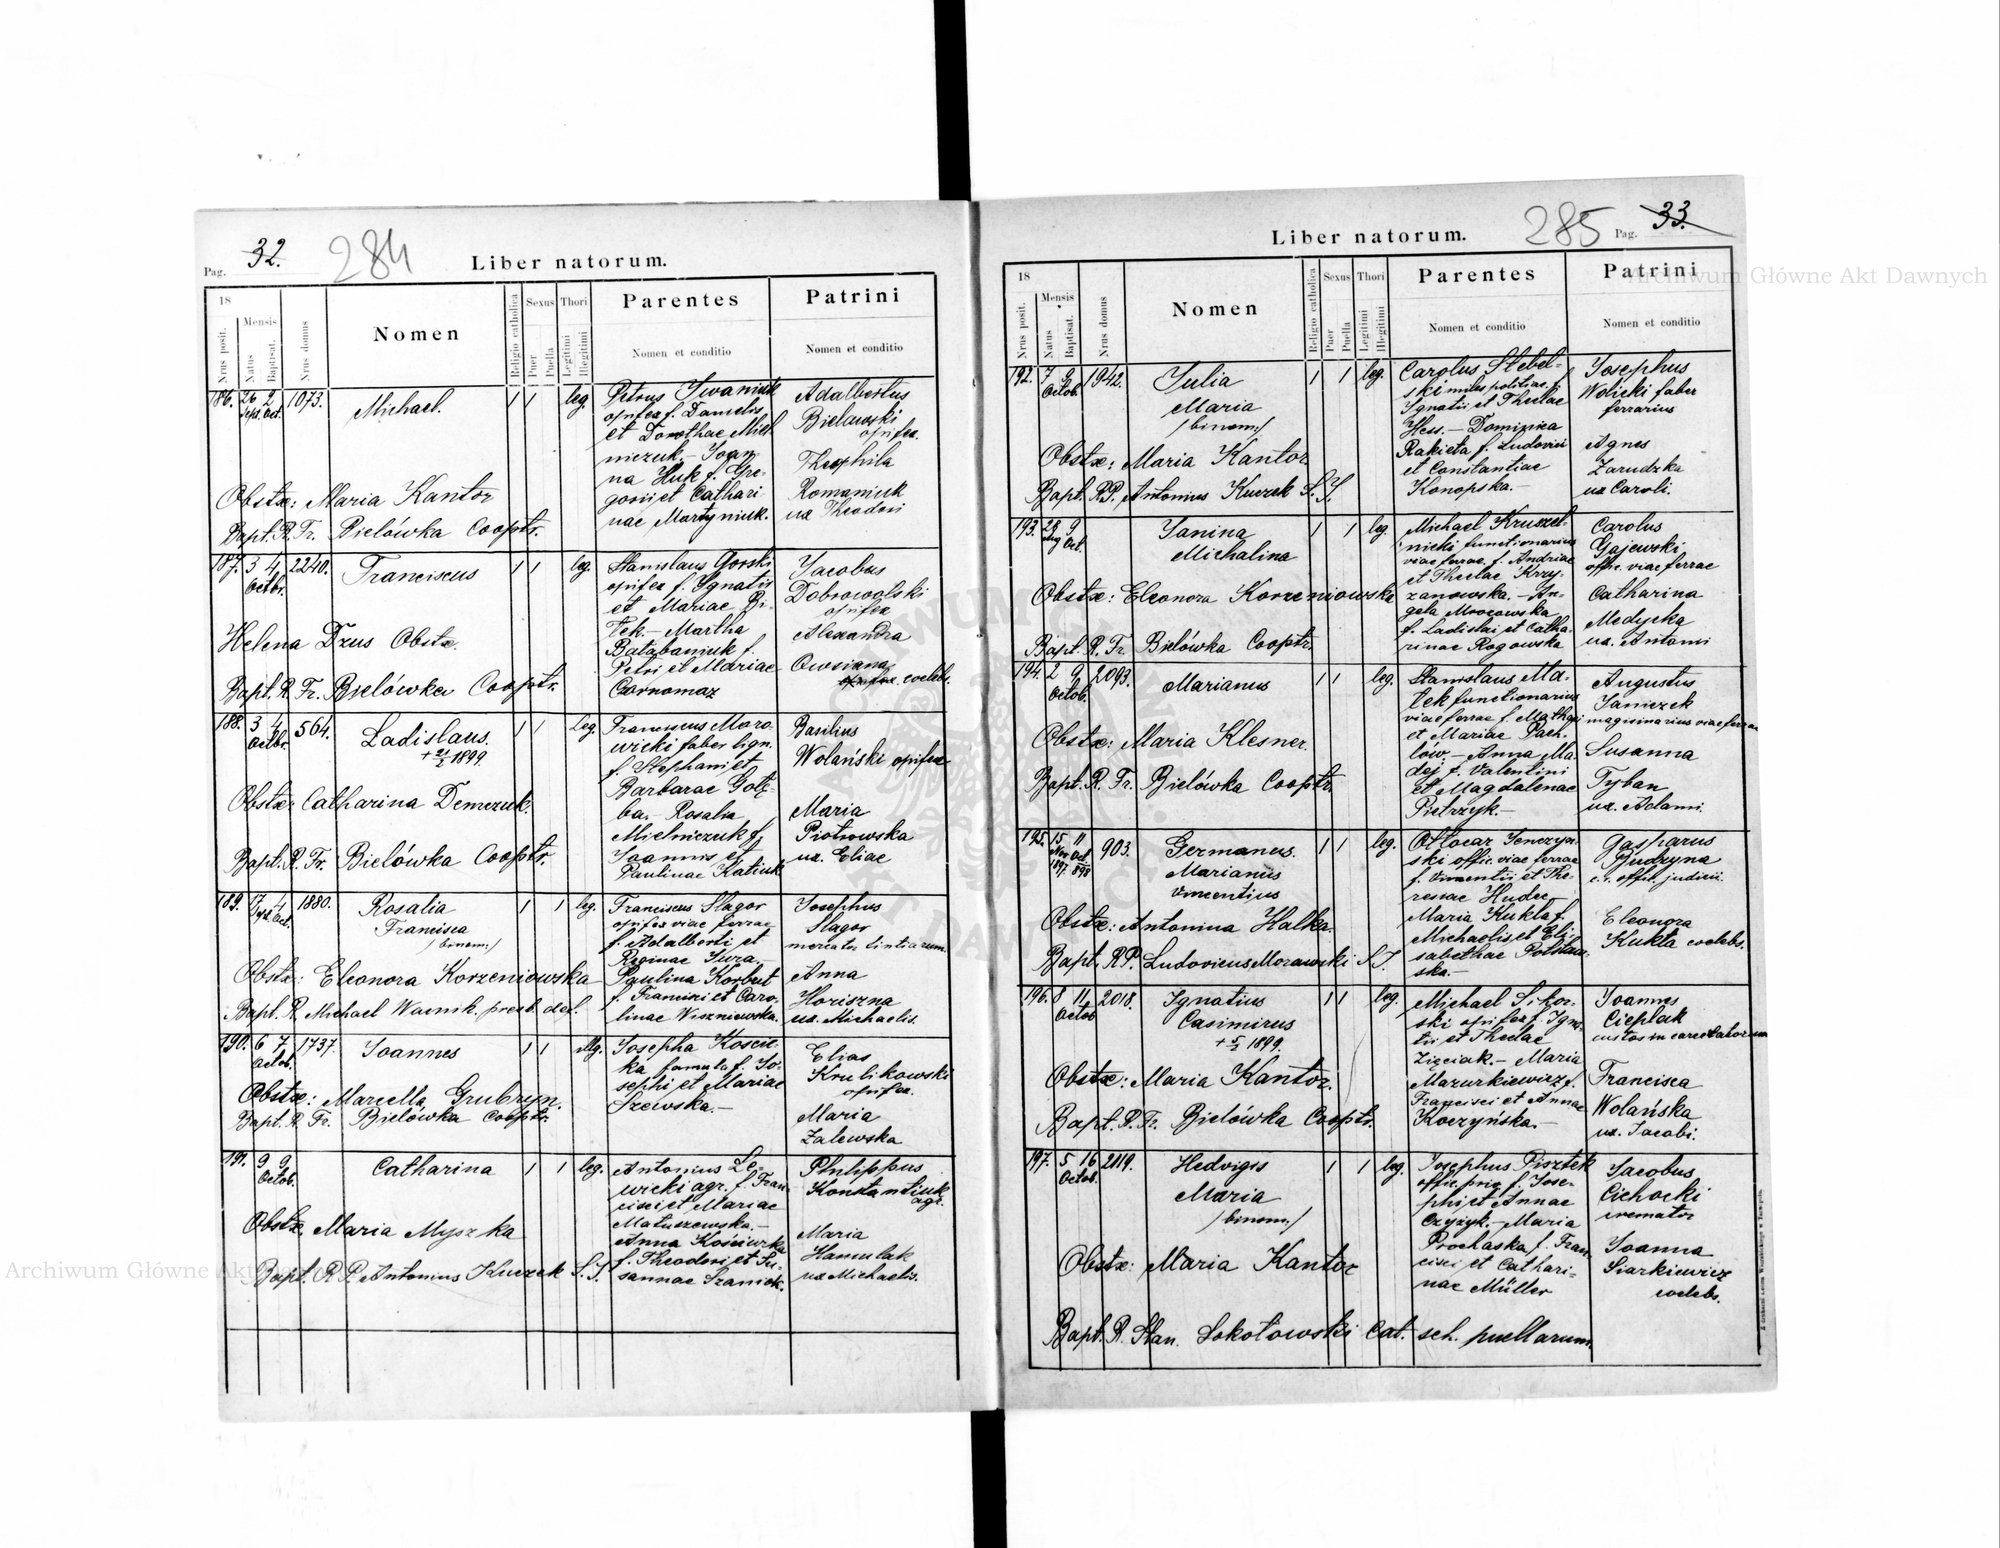 Pag. 32. 284
Liber natorum.
18
Nrus posit.
Mensis
Natus
Baptisat.
Nrus domus
Nomen
Religio catholica
Sexus
Puer
Puella
Thori
Legitimi
Illegitimi
Parentes
Nomen et conditio
Patrini
Nomen et conditio
186. 26 2 1073. Michael. 1 1 leg.
Sept. Oct.
Petrus Iwaniuk
opifex f. Danielis
et Dorothae Miel
niczuk. - Joan
na Huk f. Gre-
gorii et Cathari
nae Martyniuk.
Adalbertus
Bielawski
opifex.
Theophila
Romaniuk
ux Theodori
Obstx: Maria Kantor
Bapt. R. Fr. Bielówka Cooptr.
187. 3 4 2240. Franciscus 1 1 leg.
Octbr.
Stanislaus Gorski
opifex f. Ignatii
et Mariae Bi-
lek. - Martha
Bałabaniuk f.
Petri et Mariae
Czornomaz
Jacobus
Dobrowolski
opifex
Alexandra
Owsiana
opifex coelebs.
Helena Dzus Obstx.
Bapt. R. Fr. Bielówka Cooptr.
188. 3 4 564. Ladislaus. 1 1 Leg.
Octbr.
+ 21/2 1899.
Franciscus Moro
wicki faber lign.
f. Stephani et
Barbarae Gołę-
ba. Rosalia
Mielniczuk f.
Joannis et
Paulinae Katiuk
Basilius
Wolański opifex
Maria
Piotrowska
ux. Eliae
Obstx Catharina Demczuk.
Bapt. R. Fr. Bielówka Cooptr.
189. 17 4 1880. Rosalia 1 1 leg.
Sept. Oct.
Francisca
/binom:/
Franciscus Slagor
opifex viae ferrae
f. Adalberti et
Reginae Jura. -
Paulina Korbut
f. Francisci et Caro-
linae Wiszniewska.
Josephus
Slagor
mercator lintiarum.
Anna
Horiszna
ux. Michaelis.
Obstx: Eleonora Korzeniowska
Bapt. R. Michael Wacnik presb. def.
190. 6 7 1737. Joannes 1 1 illeg.
Octob.
Josepha Koscie-
ka famula f. Jo-
sephi et Mariae
Szewska. -
Elias
Krulikowski
opifex.
Maria
Zalewska
Obstx: Marcella Grubryn.
Bapt. R. Fr. Bielówka Cooptr.
191. 9 9 Catharina 1 1 leg.
Octob.
Antonius Le-
wicki agr. f. Fran-
cisci et Mariae
Matuszewska. -
Anna Kościurka
f. Theodori et Su-
sannae Szaniok.
Philippus
Konstantiuk
agr.
Maria
Hamulak
ux Michaelis.
Obstx. Maria Myszka
Bapt. R. P. Antonius Kuczek S. J.
285 Pag. 33.
Liber natorum.
18
Nrus posit.
Mensis
Natus
Baptisat.
Nrus domus
Nomen
Religio catholica
Sexus
Puer
Puella
Thori
Legitimi
Illegitimi
Parentes
Nomen et conditio
Patrini
Nomen et conditio
192. 7 9 1942. Julia 1 1 leg.
Octob.
Maria
/binom:/
Carolus Stebel-
ski miles politiae f.
Ignatii et Theclae
Hess. - Dominica
Rakieta f. Ludovici
et Constantiae
Konopska. -
Josephus
Wolicki faber
ferrarius
Agnes
Zarudzka
ux Caroli.
Obstx: Maria Kantor.
Bapt. R.P. Antonius Kuczek S. J.
193. 28 9 Janina 1 1 leg.
Aug Oct.
Michalina
Michael Kruszel-
nicki functionarius
viae ferrae, f. Andriae
et Theclae Krzy-
zanowska. - An-
gela Mrozowska
f. Ladislai et Catha-
rinae Rogowska
Carolus
Gajewski
offic. viae ferrae
Catharina
Medycka
ux. Antoni
Obstx: Eleonora Korzeniowska
Bapt. R. Fr. Bielówka Cooptr.
194. 2 9 2093. Marianus 1 1 leg.
Octob.
Stanislaus Ma-
lek functionarius
viae ferrae f. Mathaei
et Mariae Pach-
lów. - Anna Ma-
dej f. Valentini
et Magdalenae
Pietrzyk -
Augustus
Janiczek
magisinarius viae ferrae
Susanna
Tyban
ux. Adami.
Obstx: Maria Klesner.
Bapt. R. Fr. Bielówka Cooptr.
195. 15 11 903. Germanus. 1 1 leg.
Nov Oct
1897. 898
Marianus
Vincentius
Ottocar Jenczyn-
ski offic. viae ferrae
f. Vincentii et The-
resiae Hudec
Maria Kukla f.
Michaelis et Eli-
sabethae Połitaw-
ska. -
Gasparus
Budzyna
c. r. offic. judicii.
Eleonora
Kukła coelebs.
Obstx: Antonina Halka.
Bapt. R.P. Ludovicus Morawski S.J.
196. 8 11 2018. Ignatius 1 1 leg.
Octob
Casimirus
+ 5/2 1899.
Michael Sikor-
ski opifex f. Igna-
tii et Theclae
Zięciak. - Maria
Mazurkiewicz f.
Francisci et Annae
Koczyńska. -
Joannes
Cieplak
custos in carceratorum
Francisca
Wolańska
ux. Jacobi.
Obstx: Maria Kantor.
Bapt. R. Fr. Bielówka Cooptr.
197. 5 16 2119. Hedvigis 1 1 leg.
Octob.
Maria
/binom:/
Josephus Pisztek
offic. priv. f. Jose-
phi et Annae
Czyżyk. - Maria
Prochaska f. Fran-
cisci et Cathari-
nae Müller
Jacobus
Cichocki
cremator
Joanna
Siarkiewicz
coelebs.
Obstx: Maria Kantor
Bapt. R. Stan. Sokołowski Cat. sch. puellarum.
Archiwum Główne Akt Dawnych
Archiwum Główne Akt Dawnych